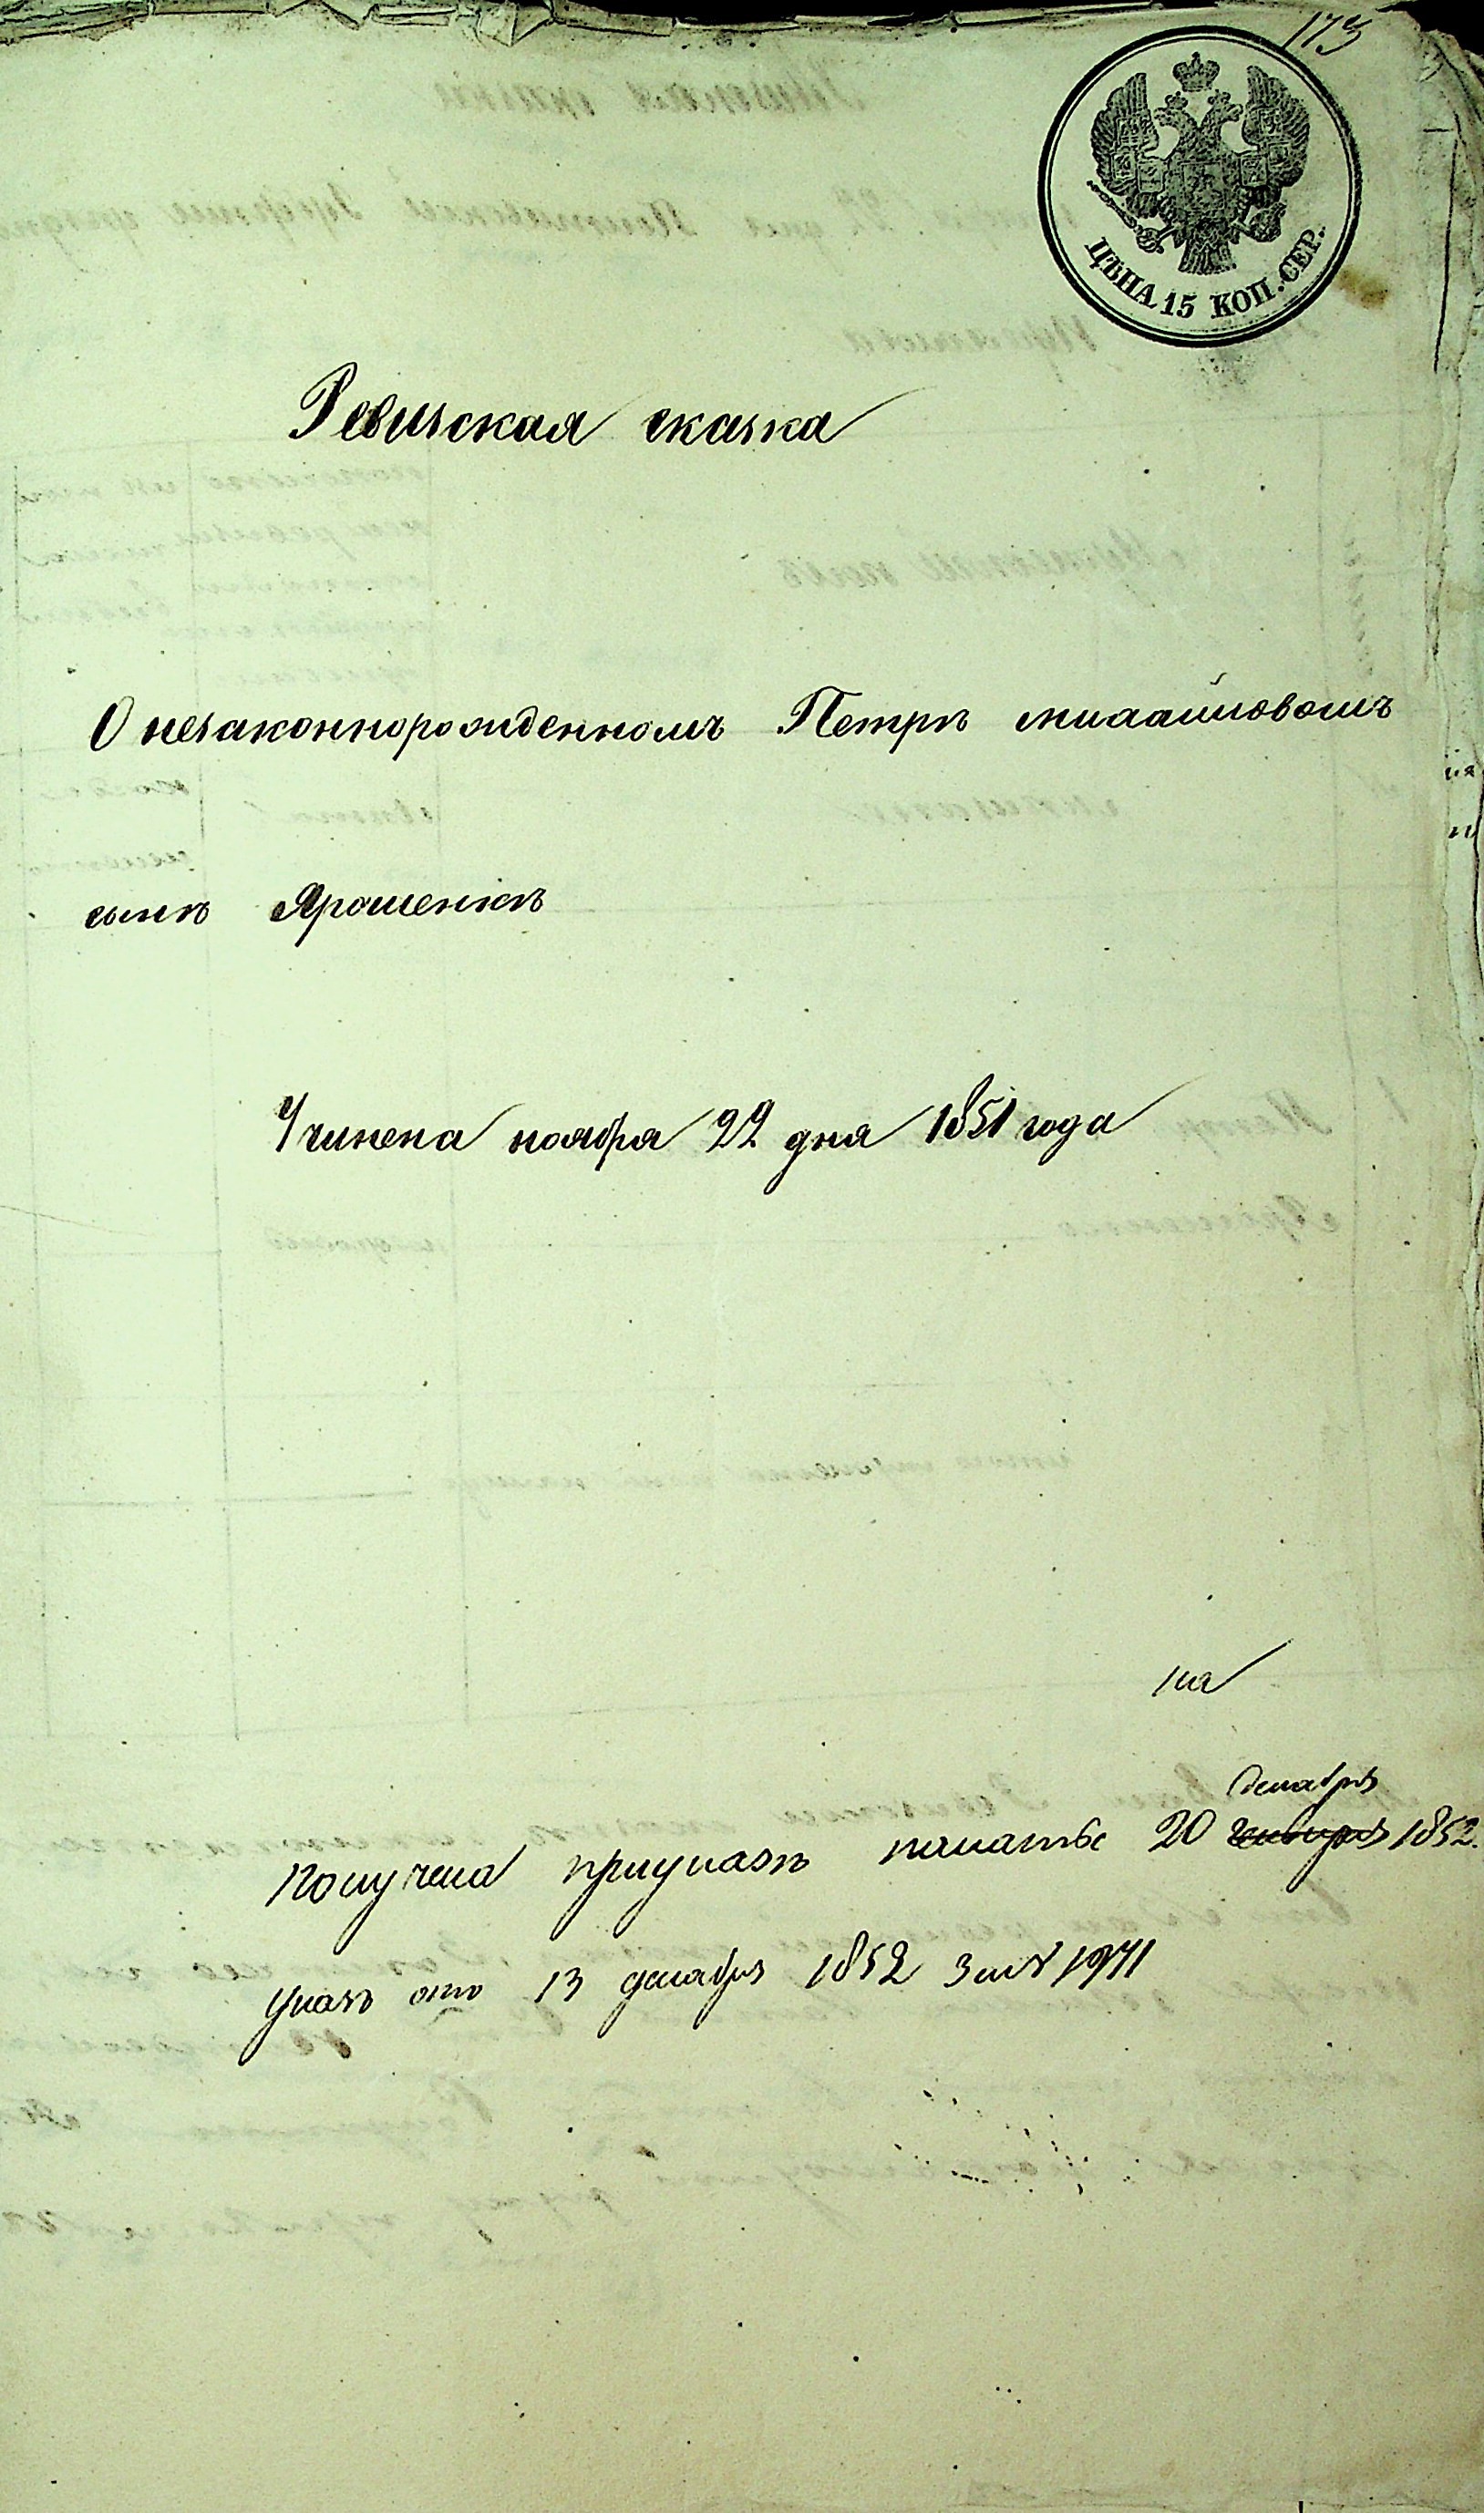 173
ЦѢНА 15 КОП. СЕР.
Ревизская сказка
О незаконнорожденномъ Петрѣ михайловомъ
сынѣ Ярошенкѣ
Учинена ноября 22 дня 1851 года
на
декабря
Получена приуказѣ палаты 20 1852.
указъ отъ 13 декабря 1852 за №